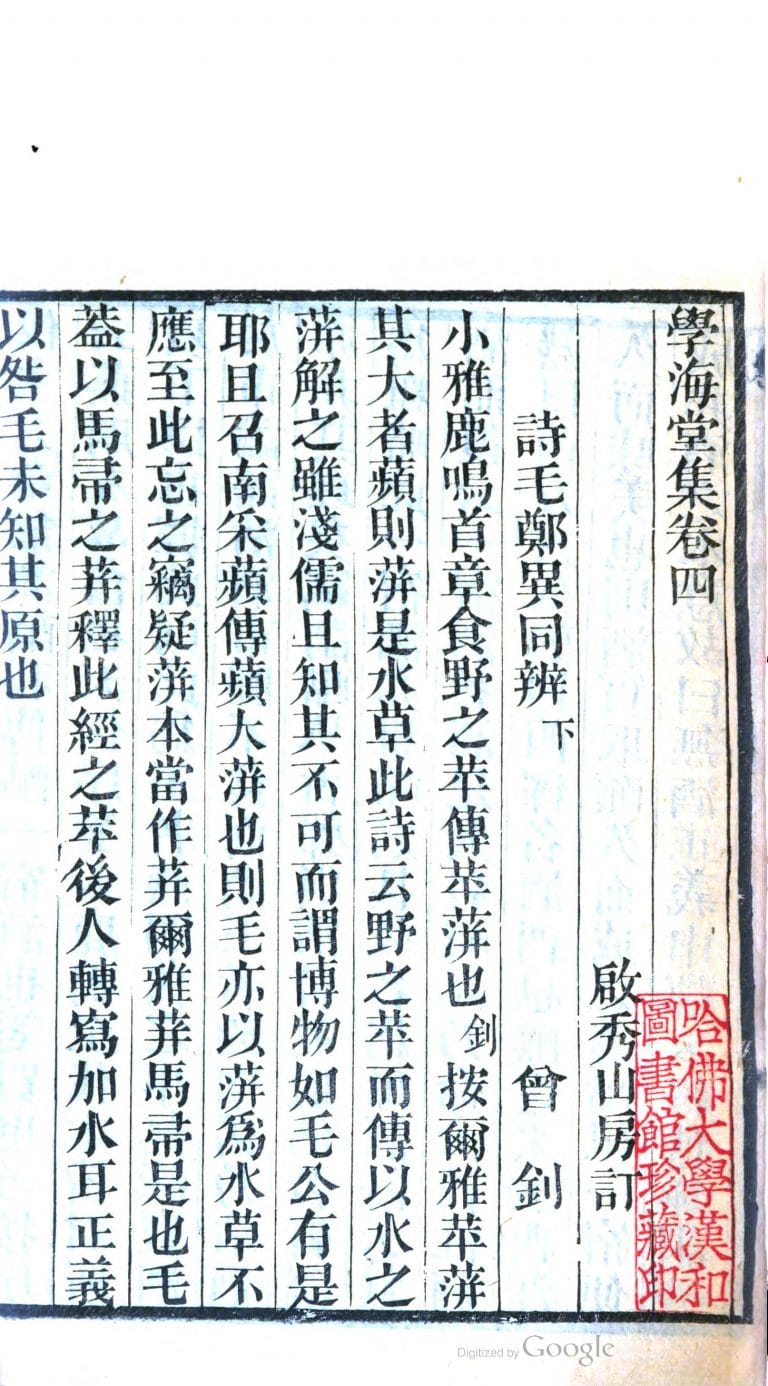 學海堂集卷四
啟秀山房訂
詩毛鄭異同辨下
曾釗
小雅鹿鳴首章食野之苹傳苹蓱也釗按爾雅苹蓱
其大者蘋則蓱是水草此詩云野之苹而傳以水之
蓱解之雖淺儒且知其不可而謂博物如毛公有是
耶且召南采蘋傳蘋大蓱也則毛亦以蓱爲水草不
應至此忘之竊疑蓱本當作荓爾雅荓馬帚是也毛
葢以馬帚之荓釋此經之苹後人轉寫加水耳正義
以咎毛未知其原也
哈佛大學漢和
圖書館珍藏印
Digitized by Google